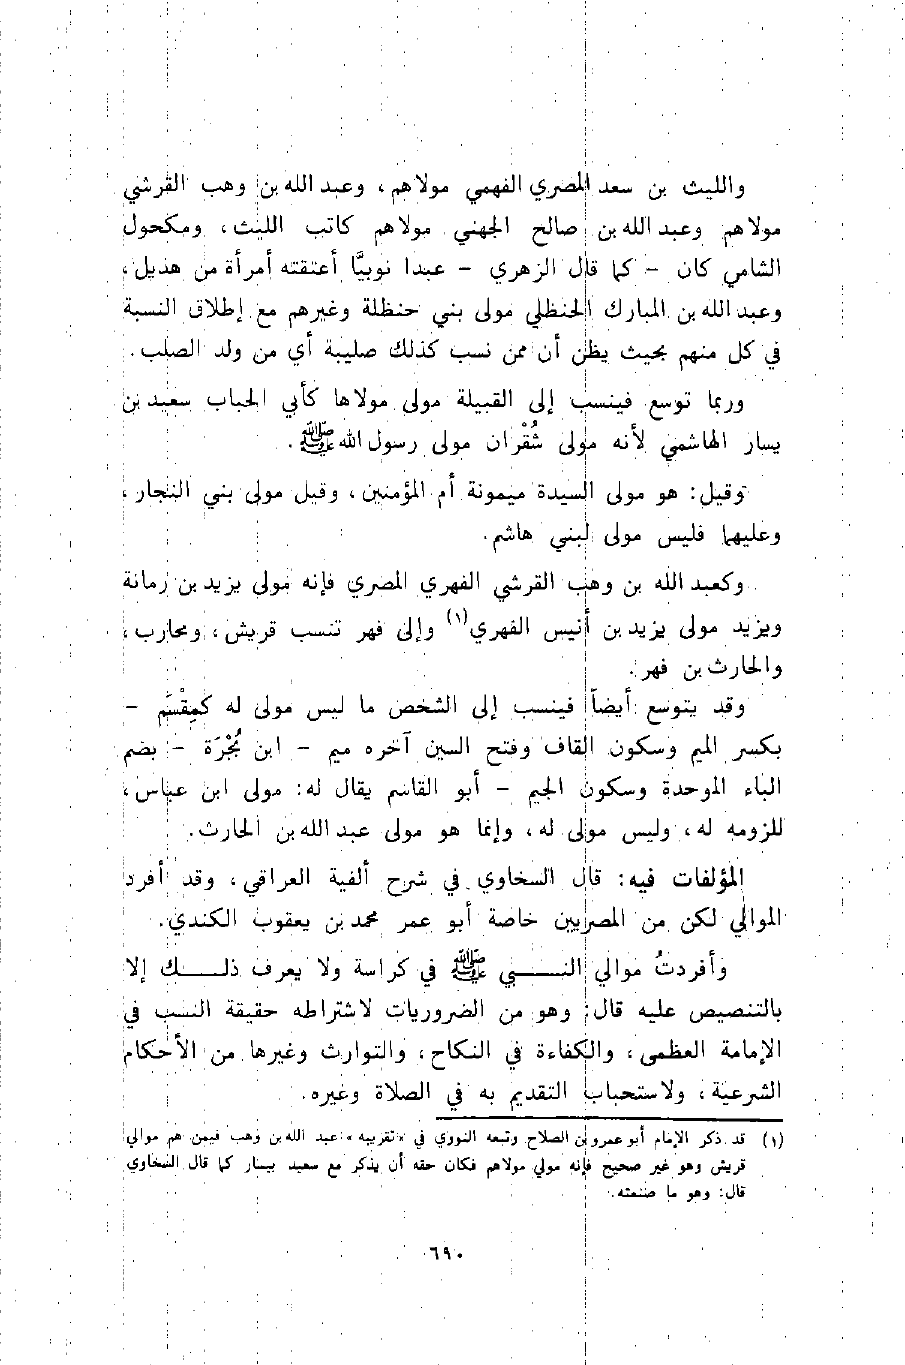 والليث بن سعد المصري الفهمي مولاهم، وعبد الله بن وهب القرشي
مولاهم وعبد الله بن صالح الجهني مولاهم كاتب الليث، ومكحول
الشامي كان - كما قال الزهري - عبدا نوبيًّا أعتقته أمرأة من هذيل،
وعبد الله بن المبارك الحنظلي مولى بني حنظلة وغيرهم مع إطلاق النسبة
في كل منهم بحيث يظن أن ممن نسب كذلك صليبة أي من ولد الصلب.
وربما توسع فينسب إلى القبيلة مولى مولاها كأبي الحباب سعيد بن
يسار الهاشمي لأنه مولى شُقْران مولى رسول الله ﷺ.
وقيل: هو مولى السيدة ميمونة أم المؤمنين، وقيل مولى بني النجار،
وعليهما فليس مولى لبني هاشم.
وكعبد الله بن وهب القرشي الفهري المصري فإنه مولى يزيد بن رمانة
ويزيد مولى يزيد بن أنيس الفهري(١) وإلى فهر تنسب قريش، ومحارب،
والحارث بن فهر.
وقد يتوسع أيضاً فينسب إلى الشخص ما ليس مولى له كمِقْسَم -
بكسر الميم وسكون القاف وفتح السين آخره ميم - ابن بُجْرَة - بضم
الباء الموحدة وسكون الجيم - أبو القاسم يقال له: مولى ابن عباس،
للزومه له، وليس مولى له، وإنما هو مولى عبد الله بن الحارث.
المؤلفات فيه: قال السخاوي في شرح ألفية العراقي، وقد أفرد
الموالي لكن من المصريين خاصة أبو عمر محمد بن يعقوب الكندي.
وأفردتُ موالي النـــبي ﷺ في كراسة ولا يعرف ذلـــك إلا
بالتنصيص عليه قال: وهو من الضروريات لاشتراطه حقيقة النسب في
الإمامة العظمى، والكفاءة في النكاح، والتوارث وغيرها من الأحكام
الشرعية، ولاستحباب التقديم به في الصلاة وغيره.
(١) قد ذكر الإمام أبو عمرو بن الصلاح وتبعه النووي في «تقريبه» عبد الله بن وهب فيمن هم موالي
قريش وهو غير صحيح فإنه مولي مولاهم فكان حقه أن يذكر مع سعيد بيسار كما قال السخاوي
قال: وهو ما صنعته.
٦٩٠